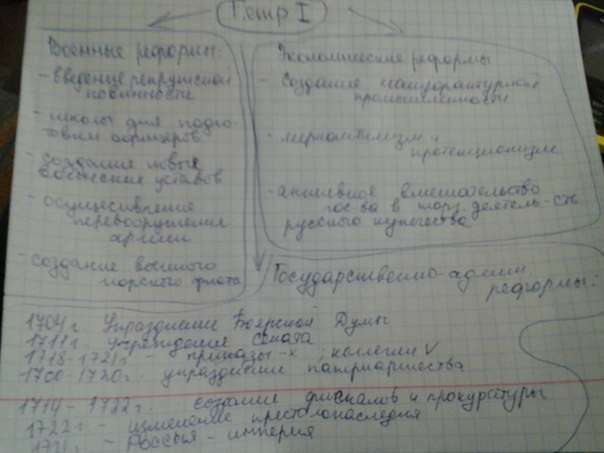 Петр I
Военные реформы:
- введение рекрутской
повинности
- школы для подго-
товки офицеров
- создание новых
военных уставов
- осуществление
перевооружения
армии
- создание военного
морского флота
Экономические реформы
- создание мануфактурной
промышленности
- меркантилизм и
протекционизм
- активное вмешательство
гос-ва в торг. деятель-сть
русского купечества
Государственно-админ
реформы:
1704г Упразднение Боярской Думы
1711г. учреждение Сената
1718-1721г - приказы -х, коллегии V
1700-1720г. упразднение патриаршества
1714-1722г. создание фискалов и прокуратуры
1722г - изменение престолонаследия
1721 - Россия - империя